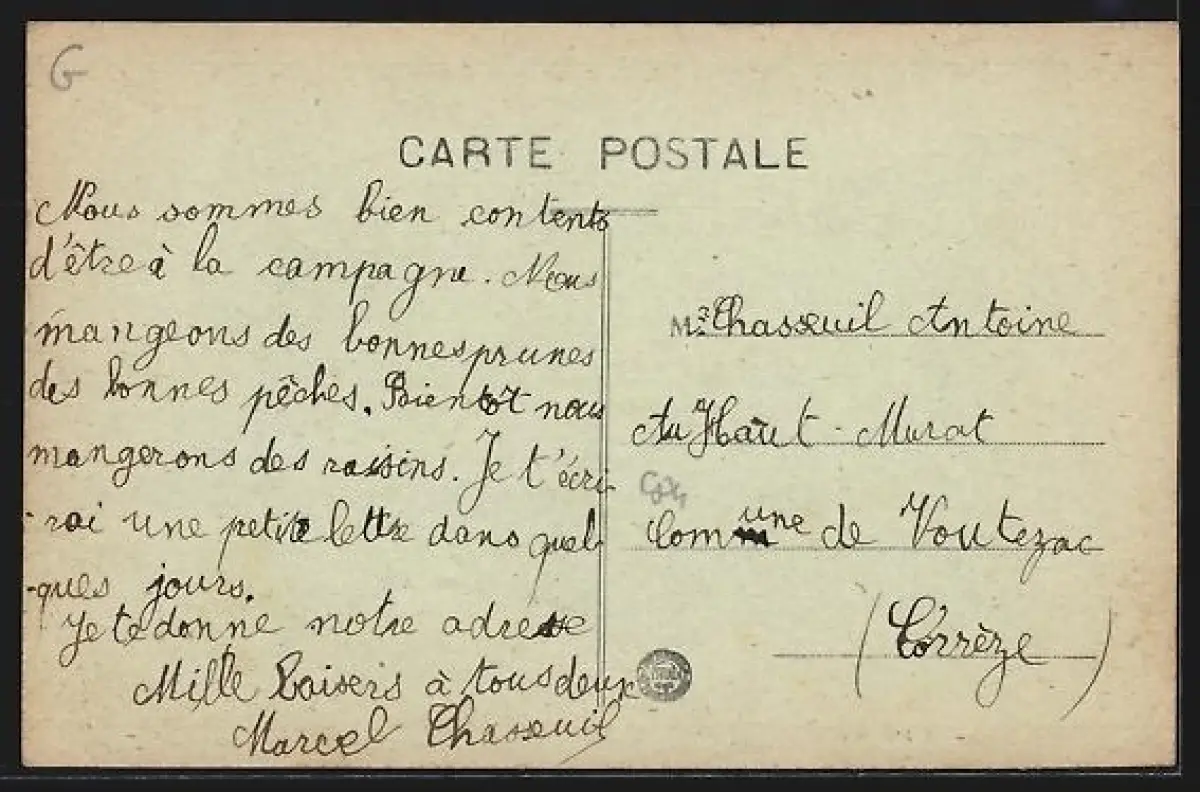 G
CARTE POSTALE
Nous sommes bien contents
d'être à la campagne. Nous
mangeons des bonnes prunes
des bonnes pêches. Bientôt nous
mangerons des raisins. Je t'écri-
-rai une petite lettre dans quel-
-ques jours.
Je te donne notre adresse
Mille baisers à tous deux
Marcel Chasseuil
Chasseuil Antoine
Au Haut-Murat
Commune de Voutezac
(Corrèze)